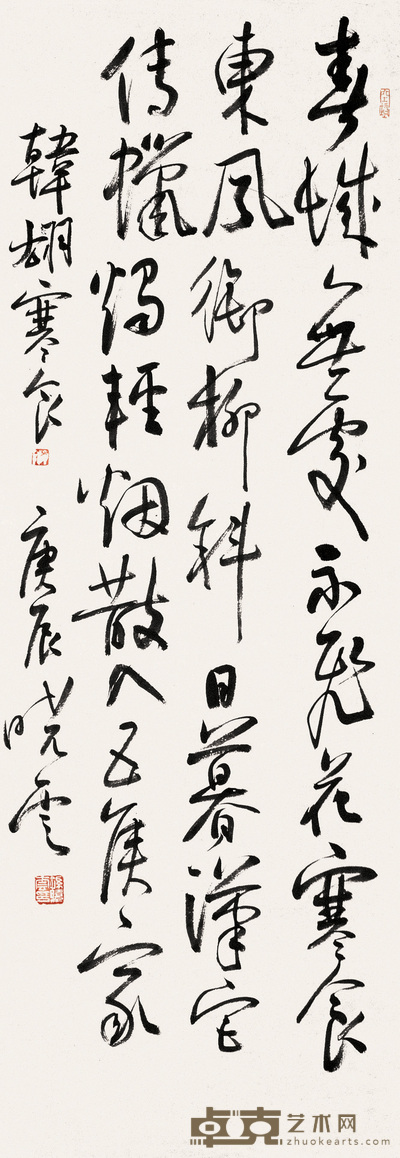 春城無處不飛花寒食
東風御柳斜日暮漢宮
傳蠟燭輕烟散入五侯家
韓翃寒食 庚辰晓雲
卓克艺术网
zhuokearts.com